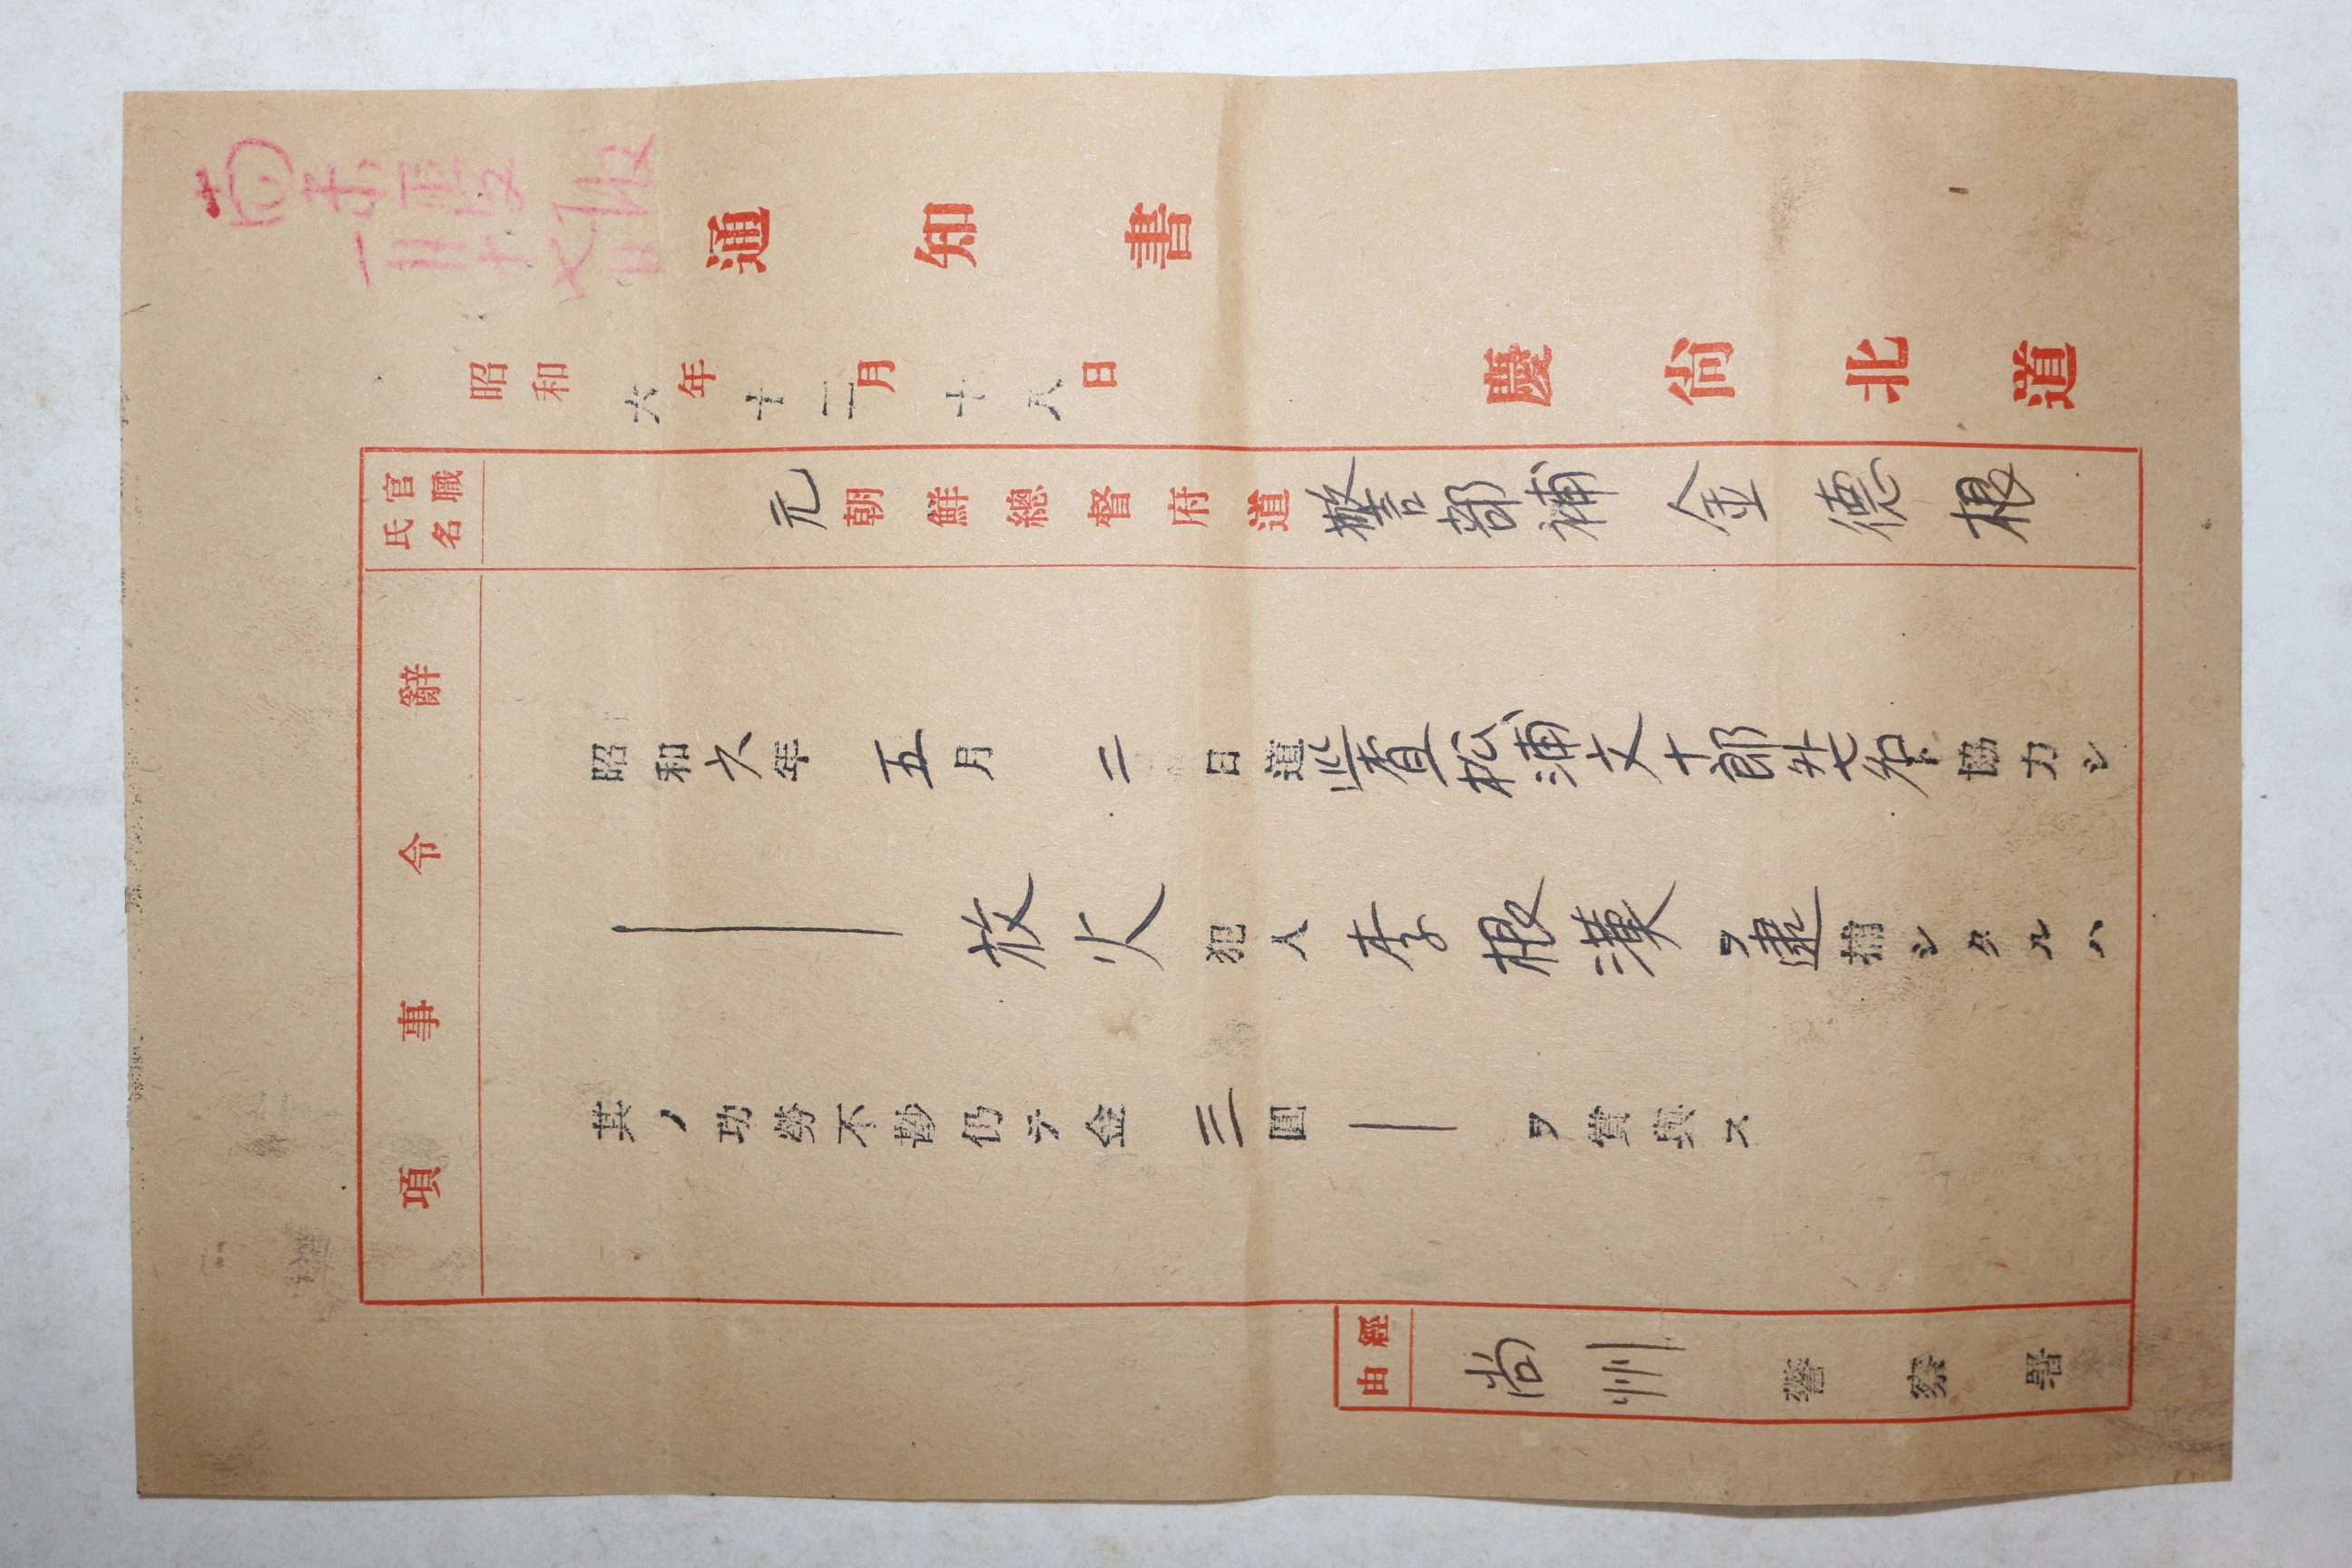 通知書
昭和六年十二月十八日
慶尚北道
官職
氏名
元朝鮮總督府道警部補金德根
辭令事項
昭和六年五月二日道巡査松浦文十郎外七名ト協力シ
放火犯人李根漢ヲ逮捕シタルハ
其ノ功勞不尠仍テ金三圓ヲ賞與ス
經由
尚州警察署